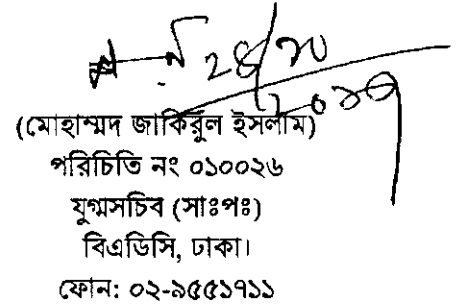 (মোহাম্মদ জাকিরুল ইসলাম)
পরিচিতি নং ০১০০২৬
যুগ্মসচিব (সাঃপঃ)
বিএডিসি, ঢাকা।
ফোন: ০২-৯৫৫১৭১১